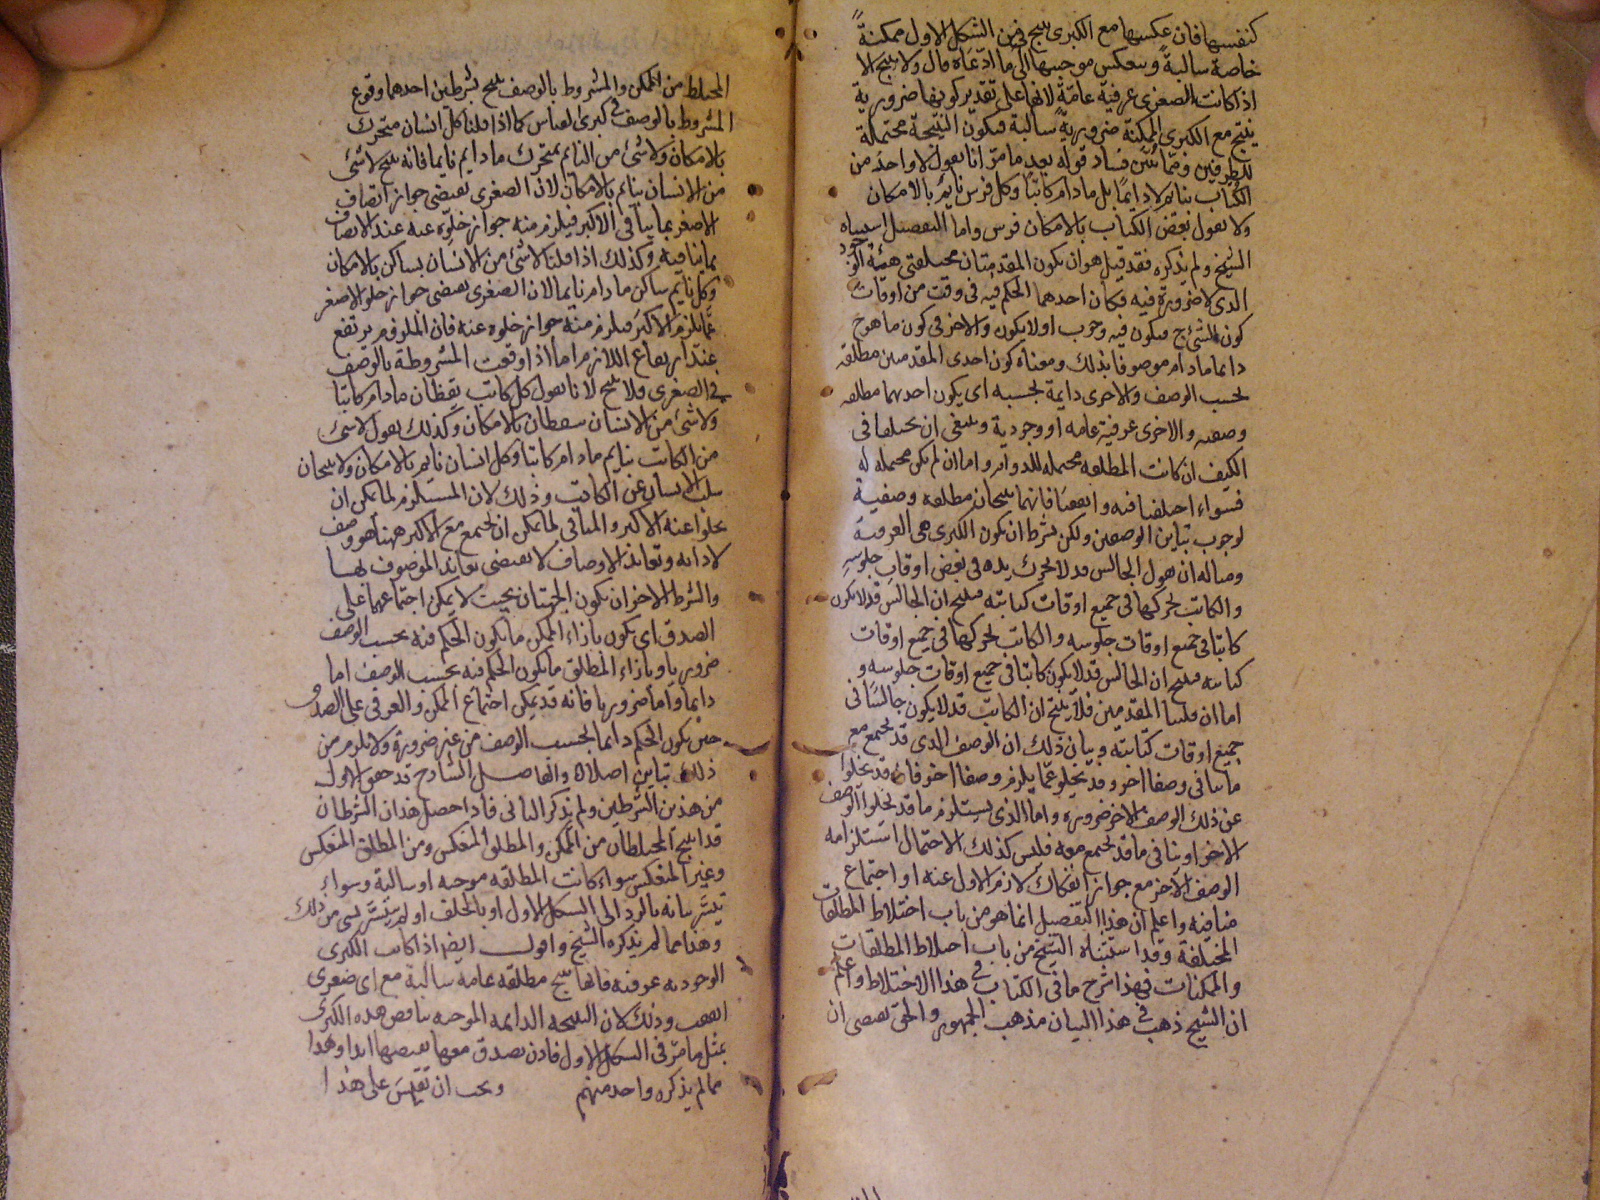 كنفسها فان عكسها مع الكبرى ينتج فى من الشكل الاول ممكنة
خاصة سالبة وينعكس موجبها الى ما ادّعاه قال ولا ينتج الا
اذا كانت الصغرى عرفية عامّة لانها على تقدير كونها ضرورية
ينتج مع الكبرى الممكنة ضرورية سالبة فتكون النتيجة محتملة
للطرفين وممّا يبيّن فساد قوله بعد ما مرّ انا نقول لا واحد من
الكتاب بنائم لا دايمًا بل ما دام كاتبًا وكل فرس نايم بالامكان
ولا نقول بعض الكتاب بالامكان فرس واما التفصيل
الشيخ ولم يذكره فقد قيل هو ان يكون المقدمتان مختلفتى هيئة الوجود
الذى لا ضرورة فيه فكان احدهما الحكم فيه فى وقت من اوقات
كون الشئ ج فيكون فيه وجوب اولا يكون والاخر فى كون ما هو ج
دايما ما دام موصوفا بذلك ومعناه كون احدى المقدمتين مطلقه
بحسب الوصف والاخرى دايمة بحسبه اى يكون احدهما مطلقه
وصفيه والاخرى عرفية عامه او وجودية وينبغى ان يختلفا فى
الكيف ان كانت المطلقه محتمله للدوام واما ان لم تكن محتمله له
فسواء اختلفتا فيه او اتفقتا فانهما ينتجان مطلقه وصفية
لوجوب تباين الوصفين ولكن بشرط ان تكون الكبرى هى العرفية
ومثاله ان نقول الجالس قد لا يحرك يده فى بعض اوقات جلوسه
والكاتب يحركها فى جميع اوقات كتابته فينتج ان الجالس قد لا يكون
كاتبا فى جميع اوقات جلوسه والكاتب يحركها فى جميع اوقات
كتابته فينتج ان الجالس قد لا يكون كاتبا فى جميع اوقات جلوسه و
اما ان قلبنا المقدمتين فلا ينتج ان الكاتب قد لا يكون جالسًا فى
جميع اوقات كتابته وبيان ذلك ان الوصف الذى قد يجتمع مع
ما ينافى وصفا اخر وقد يخلو عمّا يلزم وصفا اخر فانه قد يخلوا
عن ذلك الوصف الاخر ضرورة واما الذى يستلزم ما قد يخلوا الوصف
الاخر او ينافى ما قد يجتمع معه فليس كذلك لاحتمال استلزامه
الوصف الاخر مع جواز انفكاك لازم الاول عنه او اجتماع
منافيه واعلم ان هذا التفصيل انما هو من باب اختلاط المطلقات
المختلفة وقد استثناه الشيخ من باب اختلاط المطلقات
والممكنات فهذا شرح ما فى الكتاب فى هذا الاختلاط واعلم
ان الشيخ ذهب فى هذا البيان مذهب الجمهور والحق يقتضى ان
المختلط من الممكن والمشروط بالوصف ينتج بشرطين احدهما وقوع
المشروط بالوصف فى كبرى القياس كما اذا قلنا كل انسان متحرك
بالامكان ولا شئ من النايم بمتحرك ما دام نايما فانه ينتج لا شئ
من الانسان بنايم بالامكان لان الصغرى يقتضى جواز اتصاف
الاصغر بما ينافى الاكبر فيلزم منه جواز خلوّه عنه عند الاتصاف
بما ينافيه وكذلك اذا قلنا لا شئ من الانسان بساكن بالامكان
وكل نايم ساكن ما دام نايما لان الصغرى يقتضى جواز خلو الاصغر
عمّا يلزم الاكبر فيلزم منه جواز خلوه عنه فان الملزوم يرتفع
عند ارتفاع اللازم اما اذا وقعت المشروطة بالوصف
فى الصغرى فلا ينتج لانا نقول كل كاتب يقظان ما دام كاتبًا
ولا شئ من الانسان بيقظان بالامكان وكذلك نقول لا شئ
من الكاتب بنايم ما دام كاتبا وكل انسان نايم بالامكان ولا ينتجان
سلب الانسان عن الكاتب وذلك لان المستلزم لما يمكن ان
يخلوا عنه الاكبر والمنافى لما يمكن ان يجتمع مع الاكبر ههنا هو وصف
لا ذاته وتعاند الاوصاف لا يقتضى تعاند الموصوف بها
والشرط الاخر ان يكون الجهتان بحيث لا يمكن اجتماعهما على
الصدق اى يكون بازاء الممكن ما يكون الحكم فيه بحسب الوصف
ضروريا وبازاء المطلق ما يكون الحكم فيه بحسب الوصف اما
دايما واما ضروريا فانه قد يمكن اجتماع الممكن والعرفى على الصدق
حين يكون الحكم دايما بحسب الوصف من غير ضرورة ولا يلزم من
ذلك تباين اصلا والفاضل الشارح قد حقق الاول
من هذين الشرطين ولم يذكر الثانى فاذا حصل هذان الشرطان
قد انتج المختلطان من الممكن والمطلق المنعكس ومن المطلق المنعكس
وغير المنعكس سواء كانت المطلقه موجبه او سالبة وسواء
تيسّر بيانه بالرد الى الشكل الاول او بالخلف او لم يتيسّر بشى من ذلك
وهذا مما لم يذكره الشيخ واقول ايضا اذا كانت الكبرى
الوجوديه عرفيه فانها ينتج مطلقه عامه سالبة مع اى صغرى
اتفقت وذلك لان النتيجه الدايمه الموجبه يناقض هذه الكبرى
بمثل ما مرّ فى الشكل الاول فاذن يصدق معها نقيضها ابدا وهذا
مما لم يذكره واحد منهم ويجب ان تقيس على هذا